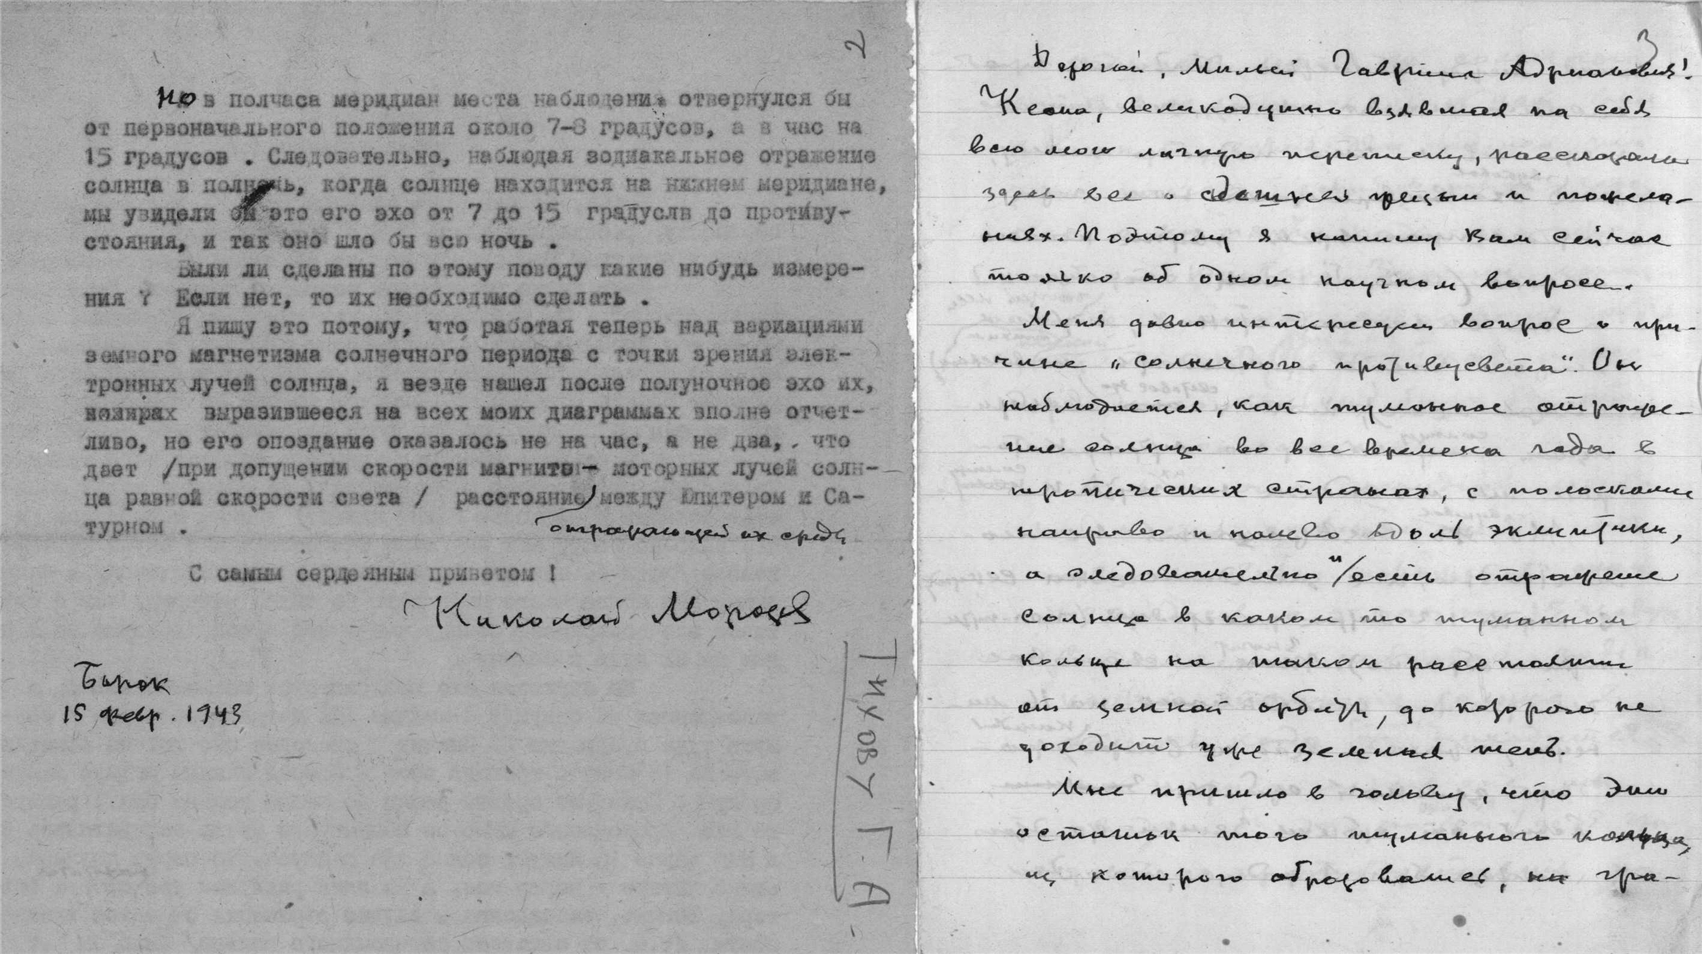 2
Но в полчаса меридиан места наблюдения отвернулся бы
от первоначального положения около 7-8 градусов, а в час на
15 градусов . Следовательно, наблюдая зодиакальное отражение
солнца в полночь, когда солнце находится на нижнем меридиане,
мы увидели бы это его эхо от 7 до 15 градуслв до противу-
стояния, и так оно шло бы всю ночь .
Были ли сделаны по этому поводу какие нибудь измере-
ния ? Если нет, то их необходимо сделать .
Я пишу это потому, что работая теперь над вариациями
земного магнетизма солнечного периода с точки зрения элек-
тронных лучей солнца, я везде нашел после полуночное эхо их,
выразившееся на всех моих диаграммах вполне отчет-
ливо, но его опоздание оказалось не на час, а не два, . что
дает /при допущении скорости магнито- моторных лучей солн-
ца равной скорости света / расстояние между Юпитером и Са-
турном .
отражающей их среды
С самым сердеяным приветом !
Николай Морозов
Борок
15 февр. 1943
Тихову Г. А.
3
Дорогой, милый Гавриил Адрианович!
Ксана, великодушно взявшая на себя
всю мою личную переписку, рассказала
здесь все о здешней жизни и пожела-
ниях. Поэтому я напишу Вам сейчас
только об одном научном вопросе.
Меня давно интересует вопрос о при-
чине „солнечного противусвета". Он
наблюдается, как туманное отраже-
ние солнца во все времена года в
тропических странах, с полосками
направо и налево вдоль эклиптики,
а следовательно и есть отражение
солнца в каком то туманном
кольце на таком расстоянии
от земной орбиты, до которого не
доходит уже земная тень.
Мне пришло в голову, что это
остаток того туманного кольца,
из которого образовались, на гра-